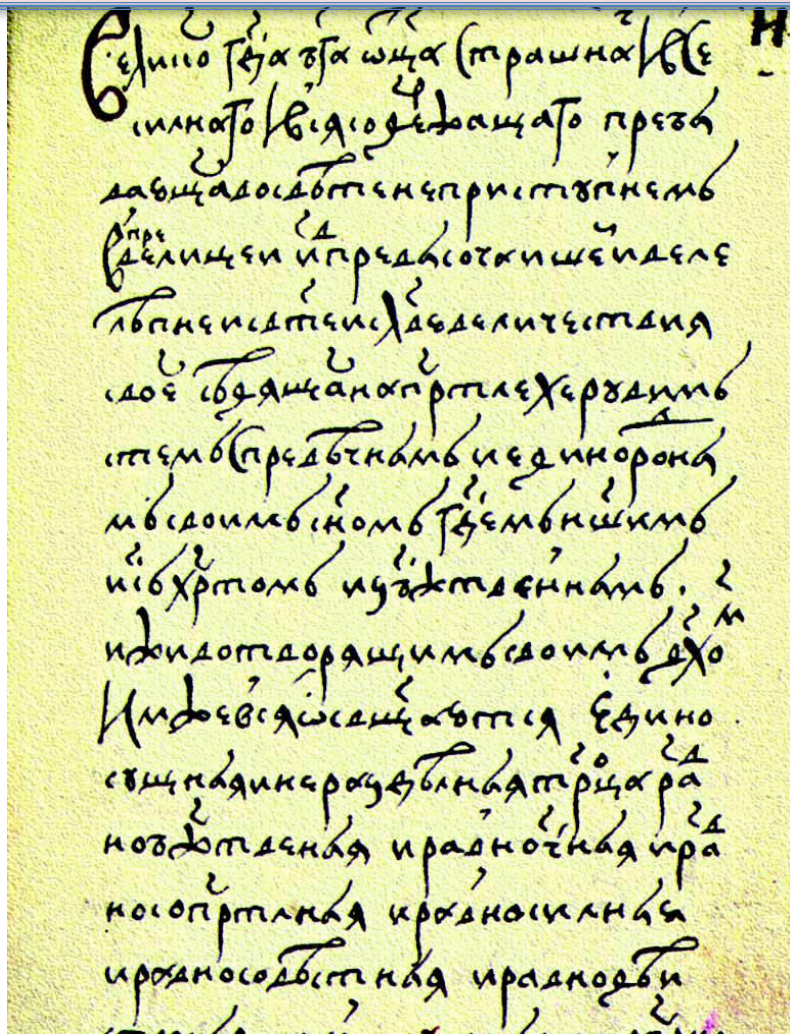 великого г҃да б҃га ѿц҃а страшнаго и все
силнаго и вся содержащаго преб꙽ы
вающа во свѣте неприступнемъ
в превелицеи и превысочаишеи и веле
лѣпнеи и св҃тѣи славе величествия
своег сѣдяща на прⷭ҇толе херувимъ
стемъ с превѣчнымъ и единородны
мъ своимъ сн҃омъ гдⷭ҇емъ нш҃имъ
іи҃съ хрⷭ҇томъ и з бж҃твеннымъ
и животворящимъ своимъ дх҃омъ
Имже вся ѡсвящаются единo
сущная и нераздѣлная трⷪ҇ца рав
нобжⷭ҇твеная и равночⷭ҇тная и рав
нопрⷭ҇толная и равносилная
и равносовѣтная и равнодѣи